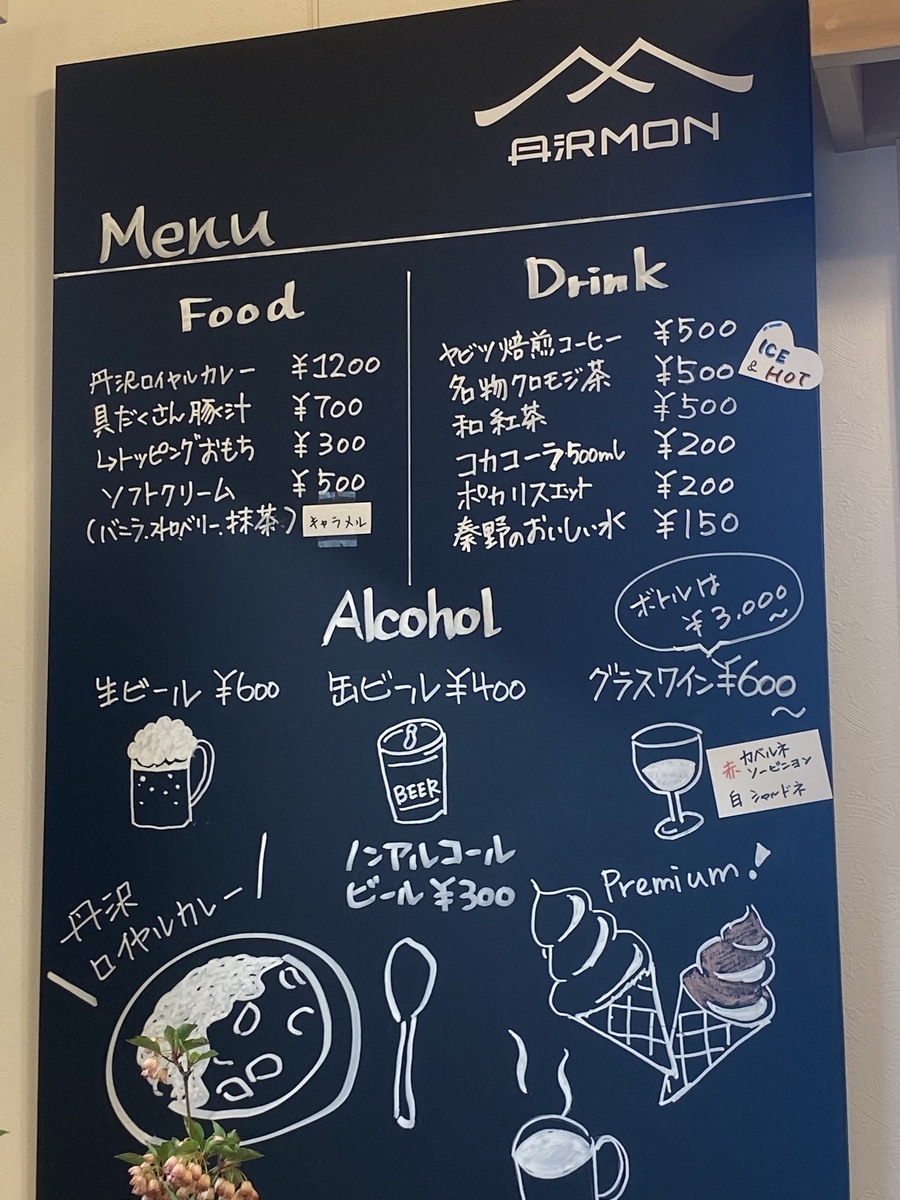 丹沢MON
Menu
Food
丹沢ロイヤルカレー ¥1200
具だくさん豚汁 ¥700
↳トッピングおもち ¥300
ソフトクリーム ¥500
(バニラ.ストロベリー.抹茶)
キャラメル
Drink
ヤビツ焙煎コーヒー ¥500
名物クロモジ茶 ¥500
和紅茶 ¥500
コカコーラ500ml ¥200
ポカリスエット ¥200
秦野のおいしい水 ¥150
ICE
& HOT
Alcohol
生ビール ¥600
缶ビール ¥400
グラスワイン ¥600
〜
ボトルは
¥3,000
〜
BEER
赤 カベルネ
ソービニヨン
白 シャルドネ
ノンアルコール
ビール ¥300
丹沢
ロイヤルカレー
Premium!